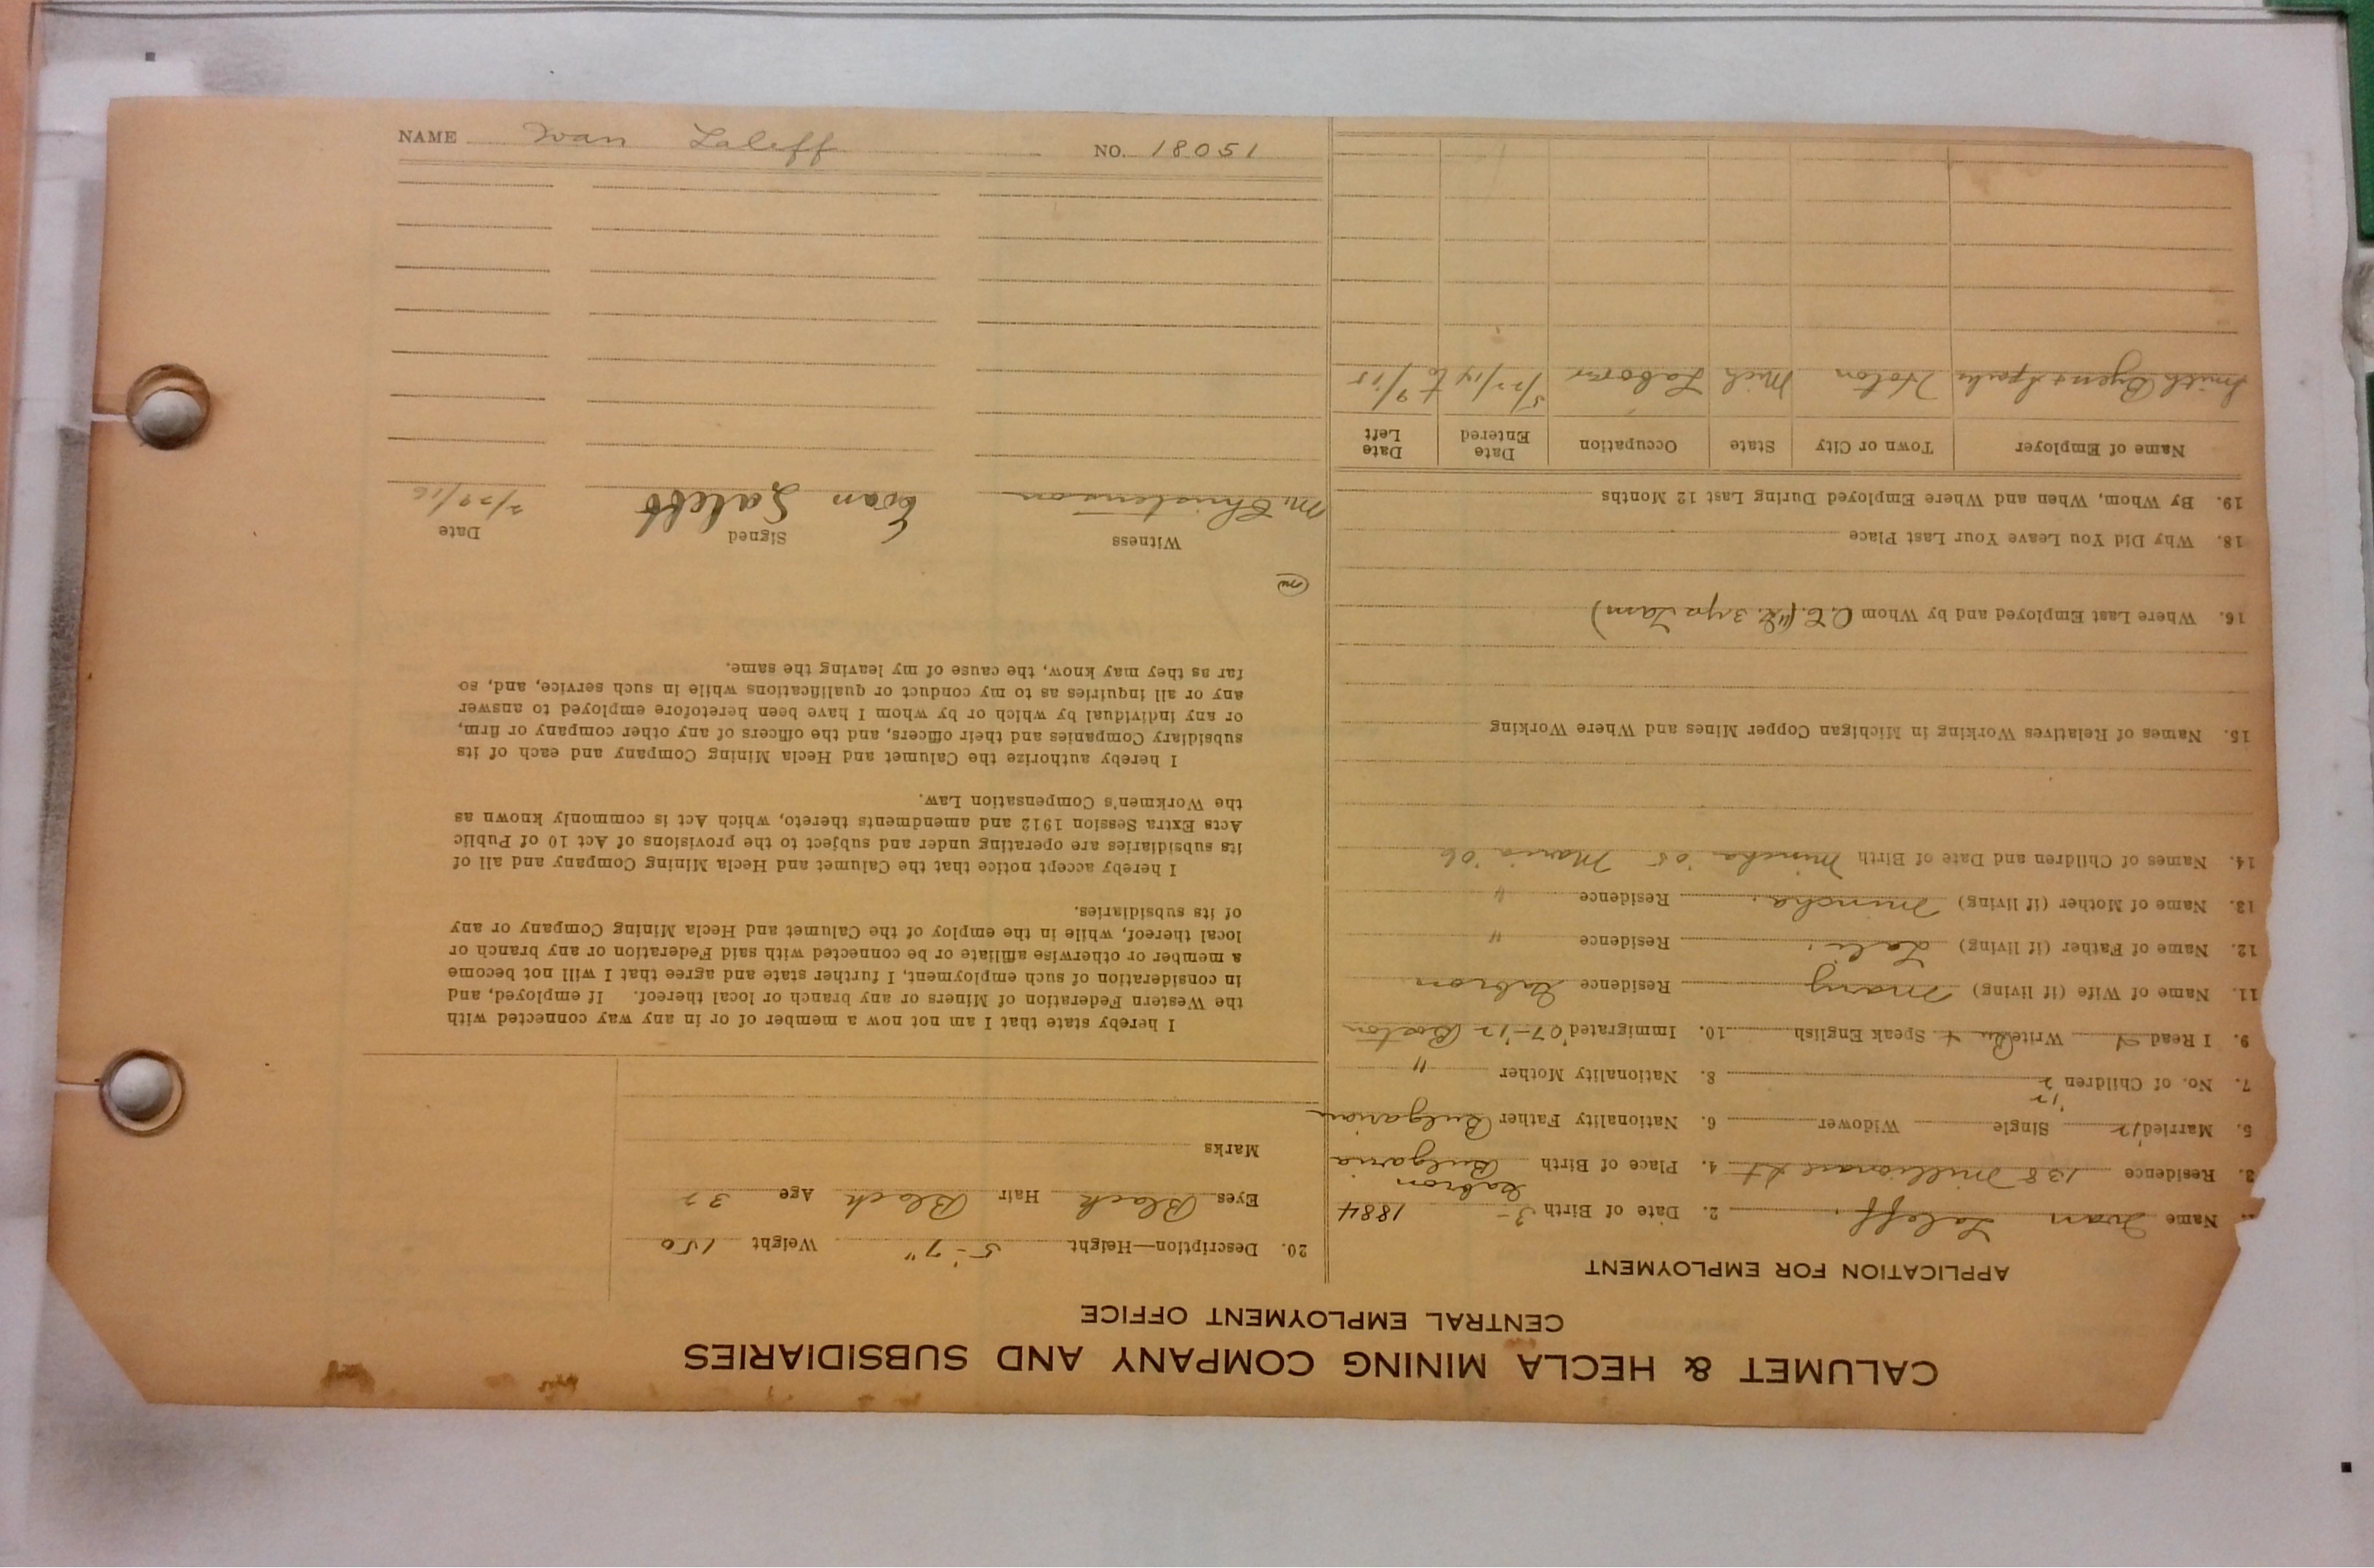 CALUMET & HECLA MINING COMPANY AND SUBSIDIARIES
CENTRAL EMPLOYMENT OFFICE
APPLICATION FOR EMPLOYMENT
Name Ivan Laleff. 2. Date of Birth 3- 1884
Gabron
3. Residence 138 Millionaire St 4. Place of Birth Bulgaria
5. Married Single Widower 6. Nationality Father Bulgarian
'12
7. No. of Children 2 8. Nationality Mother "
9. I Read Write Speak English 10. Immigrated '07-'12 Boston
11. Name of Wife (if living) Mary Residence Gabron
12. Name of Father (if living) Lali. Residence "
13. Name of Mother (if living) Mincha. Residence "
14. Names of Children and Date of Birth Mincha '05 Maria '06
15. Names of Relatives Working in Michigan Copper Mines and Where Working
16. Where Last Employed and by Whom
18. Why Did You Leave Your Last Place
19. By Whom, When and Where Employed During Last 12 Months
Name of Employer Town or City State Occupation Date Entered Date Left
Smith Byens & Sparks Hoton Mich Laborer 5/22/14 to 9/15
20. Description—Height 5'-7" Weight 150
Eyes Black Hair Black Age 32
Marks
I hereby state that I am not now a member of or in any way connected with
the Western Federation of Miners or any branch or local thereof. If employed, and
in consideration of such employment, I further state and agree that I will not become
a member or otherwise affiliate or be connected with said Federation or any branch or
local thereof, while in the employ of the Calumet and Hecla Mining Company or any
of its subsidiaries.
I hereby accept notice that the Calumet and Hecla Mining Company and all of
its subsidiaries are operating under and subject to the provisions of Act 10 of Public
Acts Extra Session 1912 and amendments thereto, which Act is commonly known as
the Workmen's Compensation Law.
I hereby authorize the Calumet and Hecla Mining Company and each of its
subsidiary Companies and their officers, and the officers of any other company or firm,
or any individual by which or by whom I have been heretofore employed to answer
any or all inquiries as to my conduct or qualifications while in such service, and, so
far as they may know, the cause of my leaving the same.
m
Witness Signed Date
M. Christenson Evan Laleff 2/29/16
NAME Ivan Laleff NO. 18051